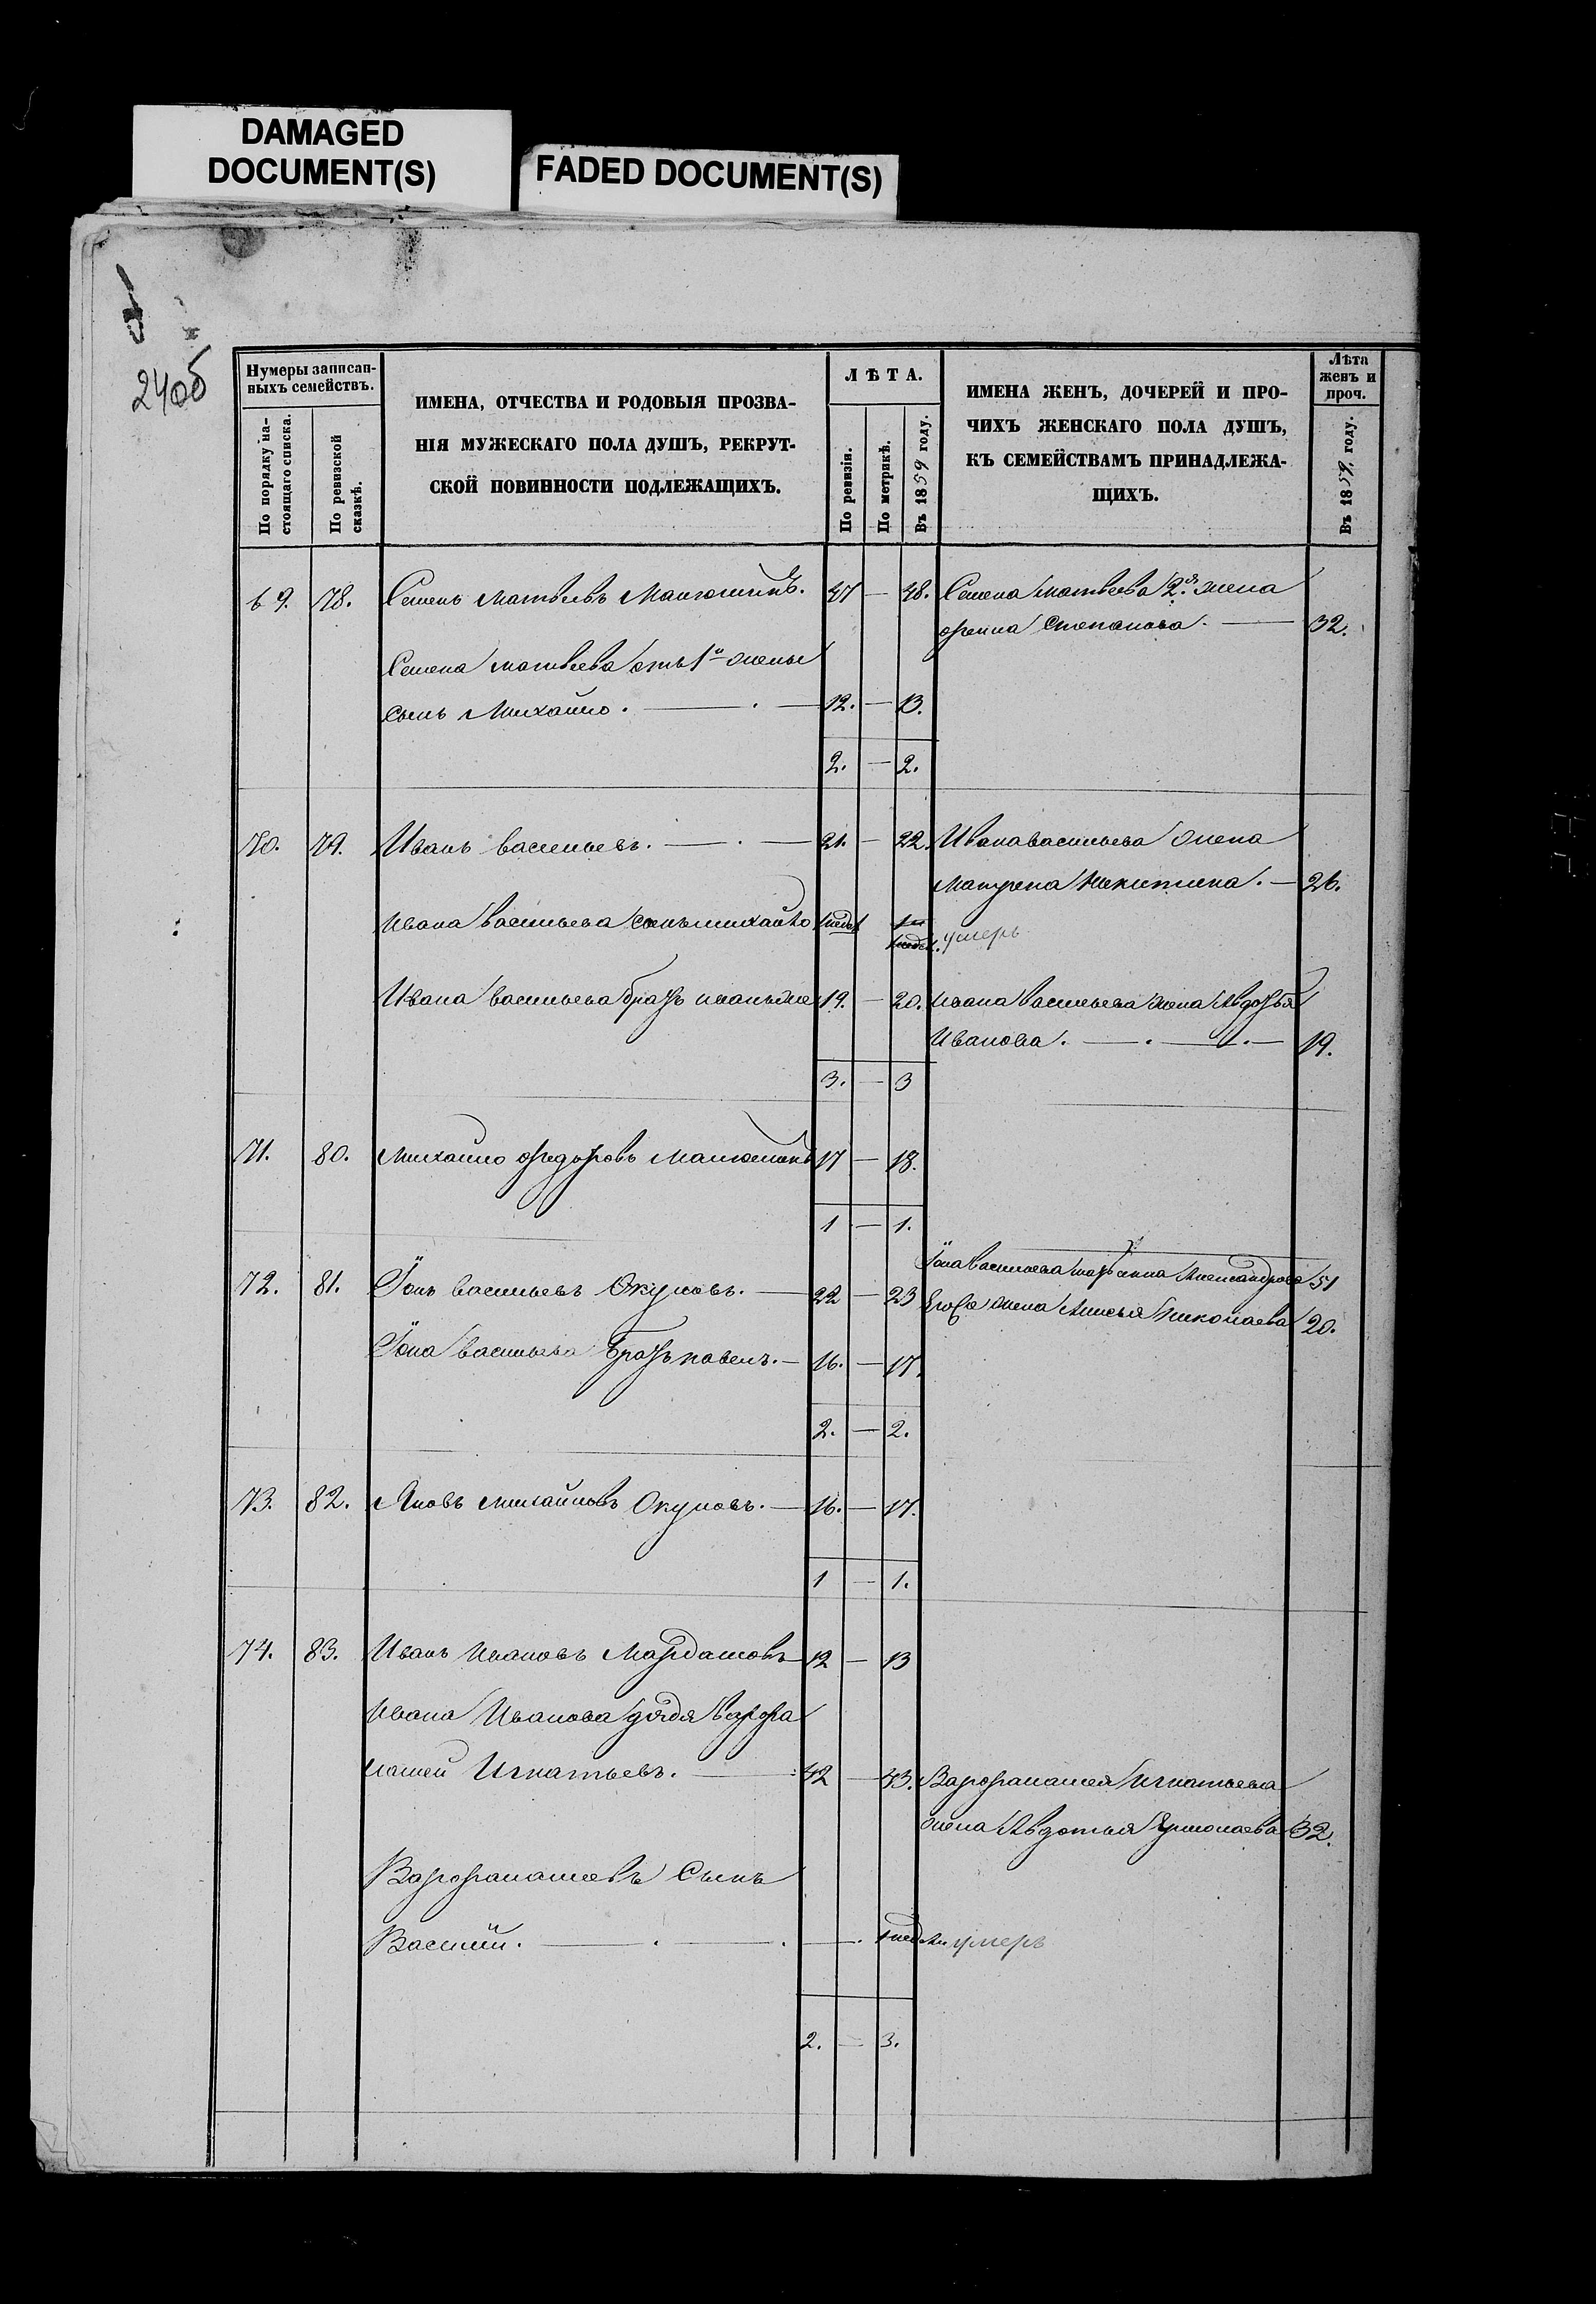 DAMAGED
DOCUMENT(S)
FADED DOCUMENT(S)
24об
Нумеры записан-
ныхъ семействъ.
По порядку на-
стоящаго списка.
По ревизской
сказкѣ.
ИМЕНА, ОТЧЕСТВА И РОДОВЫЯ ПРОЗВА-
НІЯ МУЖЕСКАГО ПОЛА ДУШЪ, РЕКРУТ-
СКОЙ ПОВИННОСТИ ПОДЛЕЖАЩИХЪ.
ЛѢТА.
По ревизіи.
По метрикѣ.
Въ 1859 году.
ИМЕНА ЖЕНЪ, ДОЧЕРЕЙ И ПРО-
ЧИХЪ ЖЕНСКАГО ПОЛА ДУШЪ,
КЪ СЕМЕЙСТВАМЪ ПРИНАДЛЕЖА-
ЩИХЪ.
Лѣта
женъ и
проч.
Въ 1859 году.
69. 78. Семенъ Матвѣевъ 47 — 48. Семена Матвѣева 2я жена
Степанова. — 32.
Семена Матвѣева отъ 1й жены
сынъ Михайло. — 12. — 13.
2. — 2.
70. 79. Иванъ Васильевъ. — 21. — 22. Ивана Васильева жена
Матрена Никитина. — 26.
Ивана Васильева сынъ Михайло умеръ
Ивана Васильева братъ Иванъ же 19. — 20. Ивана Васильева жена Авдотья
Иванова. — 19.
3. — 3
71. 80. Михайло Федоровъ 17 — 18.
1 — 1.
72. 81. Іона Васильевъ Окуловъ. — 22 — 23 Іона Васильева мать Анна Александрова 51
Его жена Анисья Николаева 20.
Іона Васильева братъ Павелъ. — 16. — 17.
2. — 2.
73. 82. Яковъ Михайловъ Окуловъ. — 16. — 17.
1 — 1.
74. 83. Иванъ Ивановъ Мардашовъ 12 — 13
Ивана Иванова дядя Варфа
ламей Игнатьевъ. — 42 — 43. Варфаламея Игнатьева
жена Авдотья Ермолаева 32.
Варфаламеевъ сынъ
Василій. — умеръ
2. — 3.